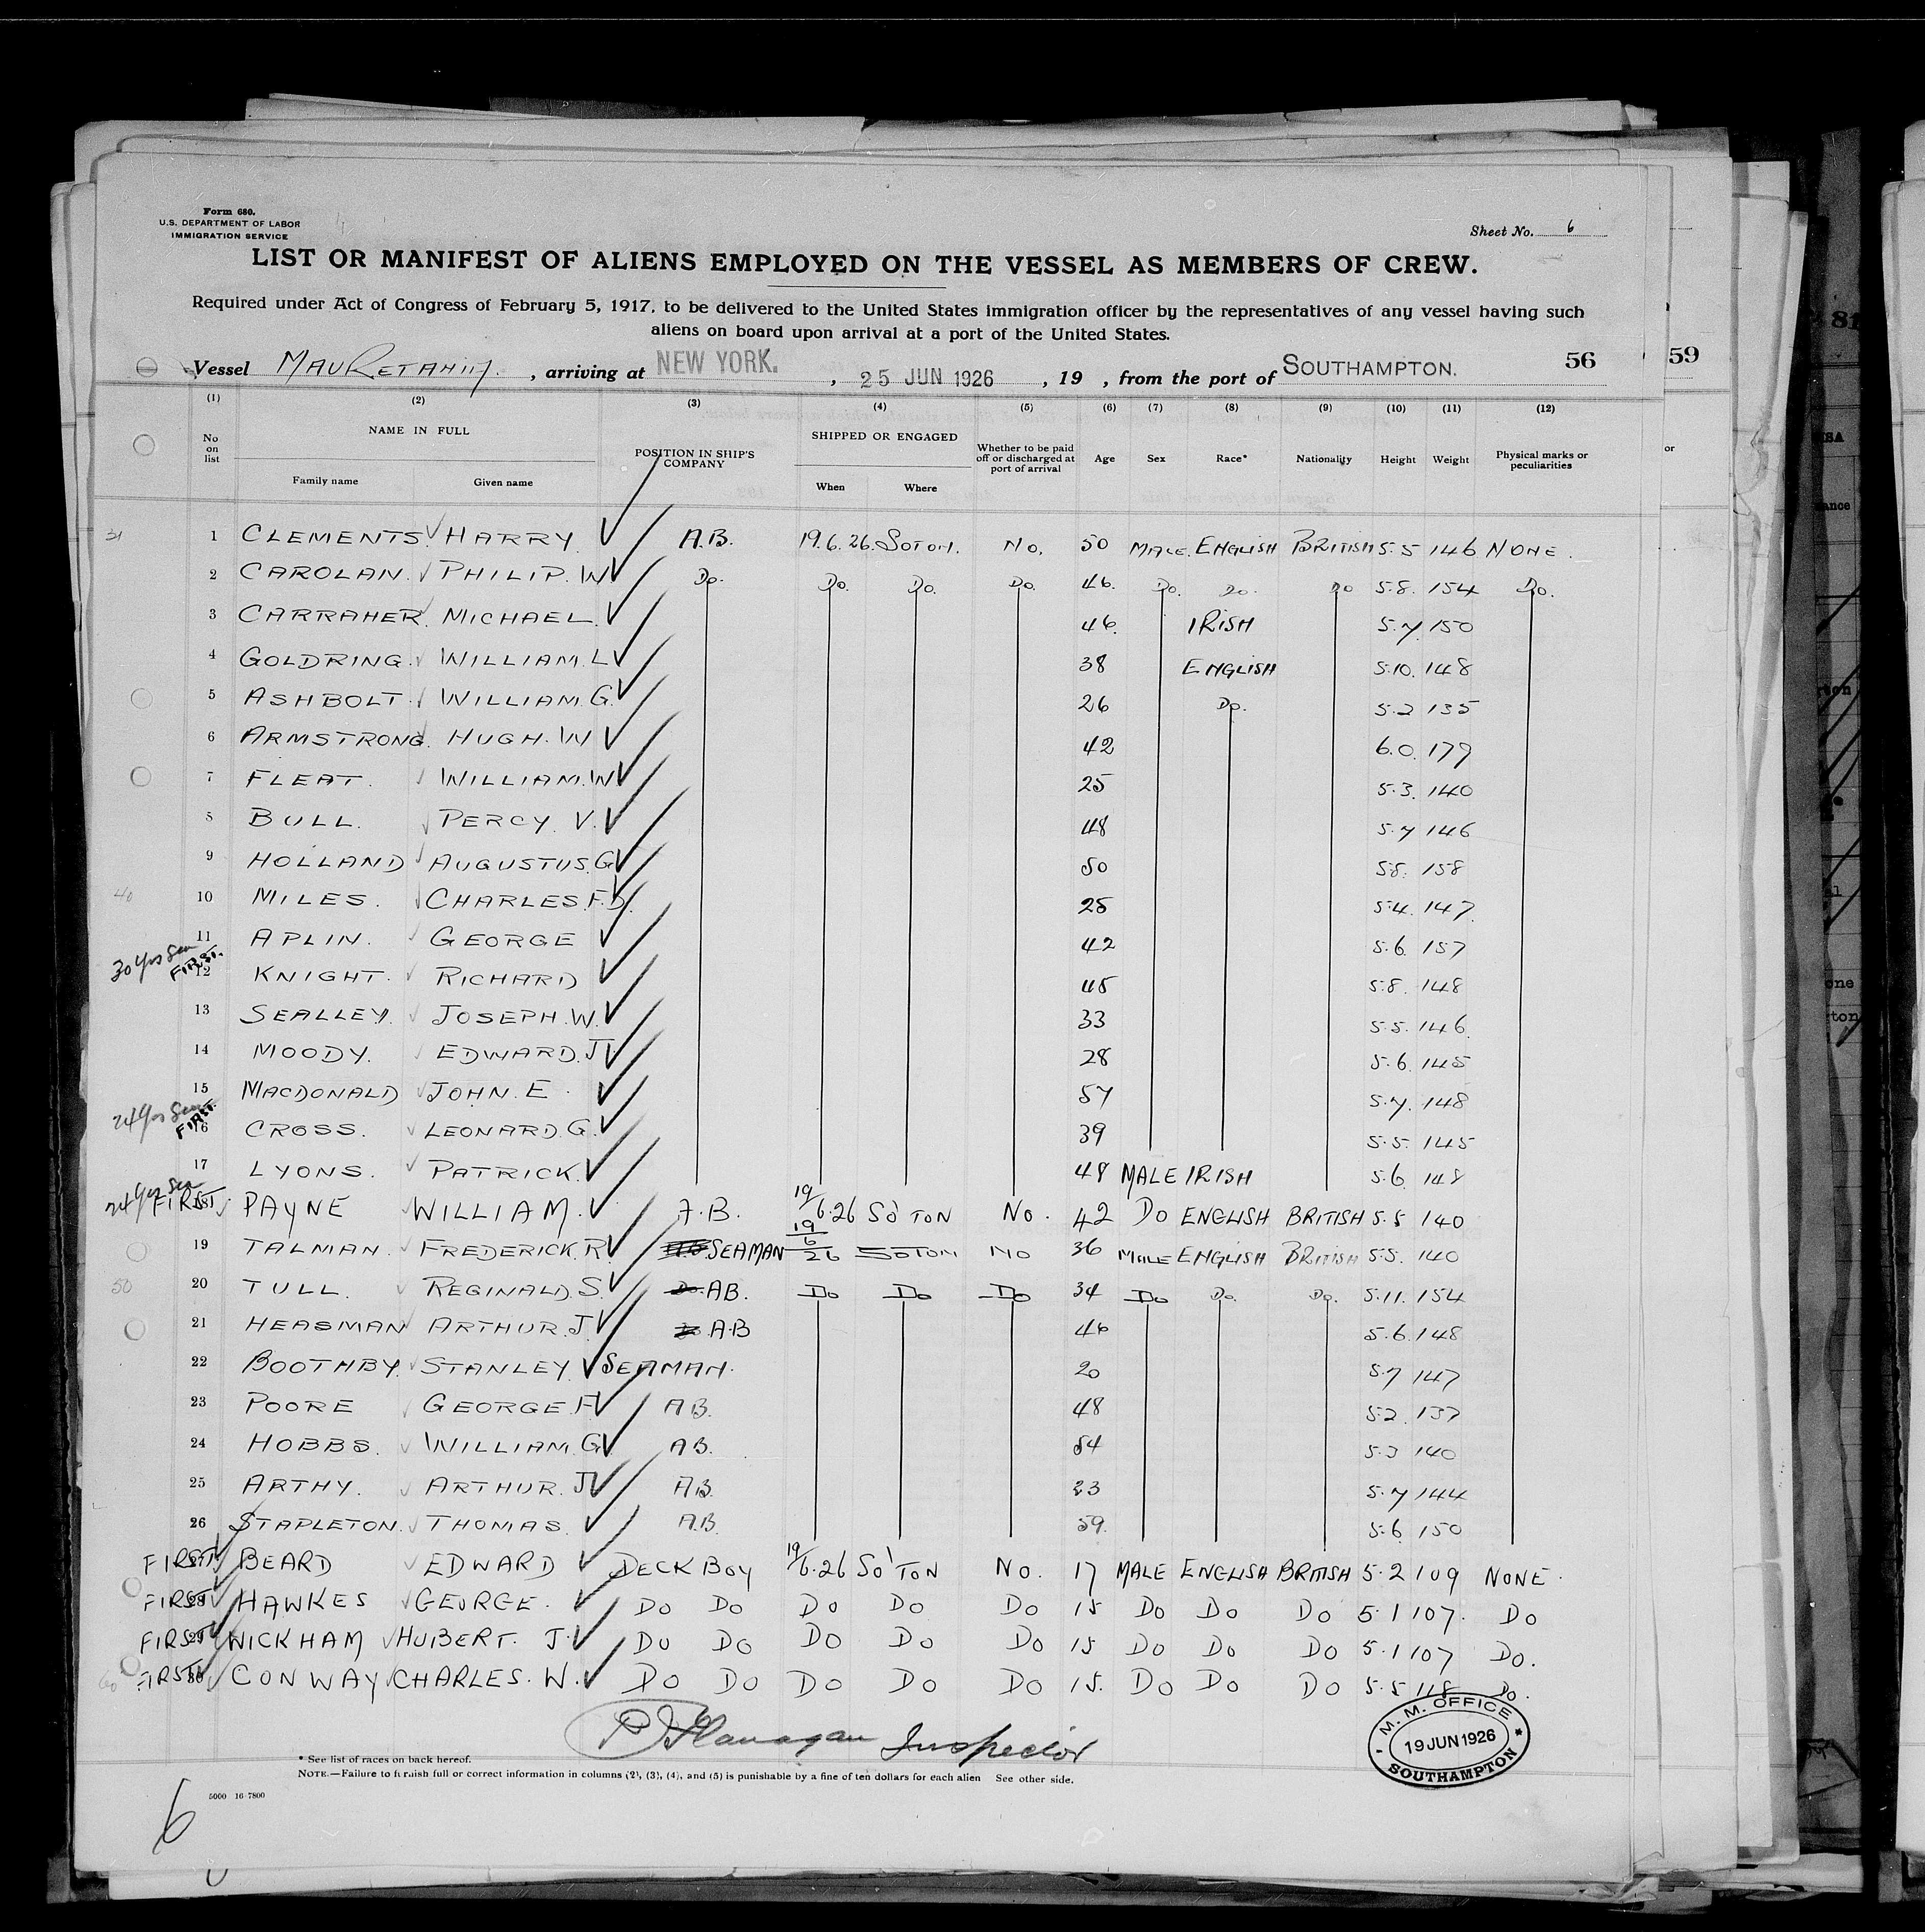 Form 680.
U.S. DEPARTMENT OF LABOR
IMMIGRATION SERVICE
Sheet No. 6
LIST OR MANIFEST OF ALIENS EMPLOYED ON THE VESSEL AS MEMBERS OF CREW.
Required under Act of Congress of February 5, 1917, to be delivered to the United States immigration officer by the representatives of any vessel having such
aliens on board upon arrival at a port of the United States.
Vessel MAURETANIA. , arriving at NEW YORK. , 25 JUN 1926 , 19 , from the port of SOUTHAMPTON. 56 59
(1) (2) (3) (4) (5) (6) (7) (8) (9) (10) (11) (12)
No on list NAME IN FULL Family name Given name POSITION IN SHIP'S COMPANY SHIPPED OR ENGAGED When Where Whether to be paid off or discharged at port of arrival Age Sex Race* Nationality Height Weight Physical marks or peculiarities
31 1 CLEMENTS HARRY A.B. 19.6.26. SOTON. No. 50 MALE. ENGLISH BRITISH 5.5 146 NONE.
2 CAROLAN. PHILIP. W Do. Do. Do. Do. 46. Do. Do. Do 5.8. 154 Do.
3 CARRAHER. MICHAEL. 46. IRISH 5.7. 150
4 GOLDRING. WILLIAM. L 38 ENGLISH 5.10. 148
5 ASHBOLT. WILLIAM. G. 26 Do. 5.2 135
6 ARMSTRONG. HUGH. W 42 6.0. 179
7 FLEAT. WILLIAM. W 25 5.3. 140
8 BULL. PERCY. V. 48 5.7 146
9 HOLLAND AUGUSTUS. G 50 5.8. 158
40 10 MILES. CHARLES. F.D. 25 5.4. 147.
11 APLIN. GEORGE 42 5.6. 157
30 yrs Sea FIRST. 12 KNIGHT. RICHARD 45 5.8. 148
13 SEALLEY. JOSEPH. W. 33 5.5. 146.
14 MOODY. EDWARD. J. 28 5.6. 145
15 MACDONALD JOHN. E. 57 5.7. 148
24 yrs Sea FIRST. 16 CROSS. LEONARD. G. 39 5.5. 145
17 LYONS. PATRICK. 48 MALE IRISH 5.6. 148
24 yrs Sea FIRST. 18 PAYNE WILLIAM. A.B. 19/6.26 SO'TON No. 42 DO ENGLISH BRITISH 5.5 140
19 TALMAN. FREDERICK. R. SEAMAN 19/6/26 SOTON NO 36 MALE ENGLISH BRITISH 5.5. 140
50 20 TULL. REGINALD. S. Do. AB. Do Do Do 34 Do Do. Do. 5.11. 154
21 HEASMAN ARTHUR. J. A.B 46 5.6. 148
22 BOOTHBY. STANLEY. SEAMAN. 20 5.7 147
23 POORE GEORGE. F. A.B. 48 5.2. 137
24 HOBBS. WILLIAM. G. A.B. 54 5.3 140
25 ARTHY. ARTHUR. J. A.B. 23 5.7 144
26 STAPLETON. THOMAS. A.B. 59. 5.6 150
FIRST 27 BEARD EDWARD DECK BOY 19/6.26 SO'TON No. 17 MALE ENGLISH BRITISH 5.2 109 NONE.
FIRST 28 HAWKES GEORGE. DO DO DO DO DO 15 DO DO DO 5.1 107. DO
FIRST 29 WICKHAM HUBERT. J. DO DO DO DO DO 15 DO DO DO 5.1 107 DO.
60 FIRST 30 CONWAY CHARLES. W. DO DO DO DO DO 15. DO DO DO 5.5 118 DO.
P J Flanagan Inspector
M. M. OFFICE
19 JUN 1926
SOUTHAMPTON
* See list of races on back hereof.
NOTE.—Failure to furnish full or correct information in columns (2), (3), (4), and (5) is punishable by a fine of ten dollars for each alien See other side.
5000 16-7800
6